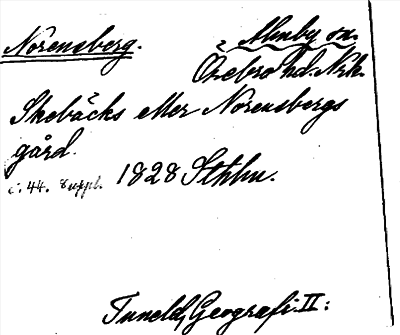 Norensberg.
Almby sn.
Örebro hd. Nrk.
Skebäcks eller Norensbergs
gård.
c. 44. Suppl. 1828 Sthlm.
Tuneld, Geografi. II: